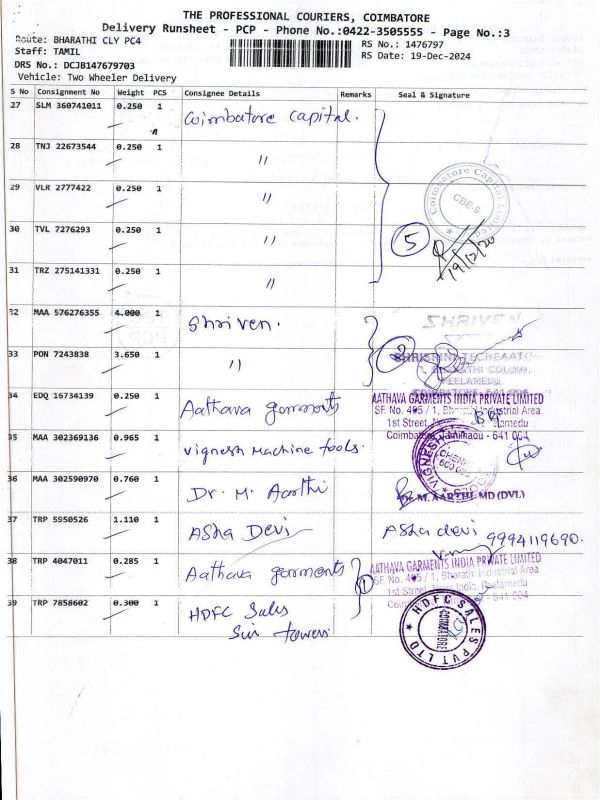 THE PROFESSIONAL COURIERS, COIMBATORE
Delivery Runsheet - PCP - Phone No.:0422-3505555 - Page No.:3
Route: BHARATHI CLY PC4
RS No.: 1476797
Staff: TAMIL
RS Date: 19-Dec-2024
DRS No.: DCJB147679703
Vehicle: Two Wheeler Delivery
S No Consignment No Weight PCS Consignee Details Remarks Seal & Signature
27 SLM 360741011 0.250 1 Coimbatore capital.
28 TNJ 22673544 0.250 1 "
29 VLR 2777422 0.250 1 "
Coimbatore Capital Limited
CBE-6
30 TVL 7276293 0.250 1 " 5
19/12/20
31 TRZ 275141331 0.250 1 "
32 MAA 576276355 4.000 1 Shriven.
SHRIVEN
33 PON 7243838 3.650 1 "
BHARATHI COLONY,
PEELAMEDU,
34 EDQ 16734139 0.250 1 Aathava garments
AATHAVA GARMENTS INDIA PRIVATE LIMITED
SF. No. 495 / 1, Bharathi Industrial Area
1st Street,
35 MAA 302369136 0.965 1 Vignesh Machine tools.
36 MAA 302590970 0.760 1 Dr. M. Aarthi
Dr. M. AARTHI, MD (DVL)
37 TRP 5950526 1.110 1 Asha Devi Asha devi 9994119690.
38 TRP 4047011 0.285 1 Aathava garments 1
AATHAVA GARMENTS INDIA PRIVATE LIMITED
SF. No. 495 / 1, Bharathi Industrial Area
39 TRP 7858602 0.300 1 HDFC Sales
Sun towers
HDFC SALES PVT LTD
COIMBATORE